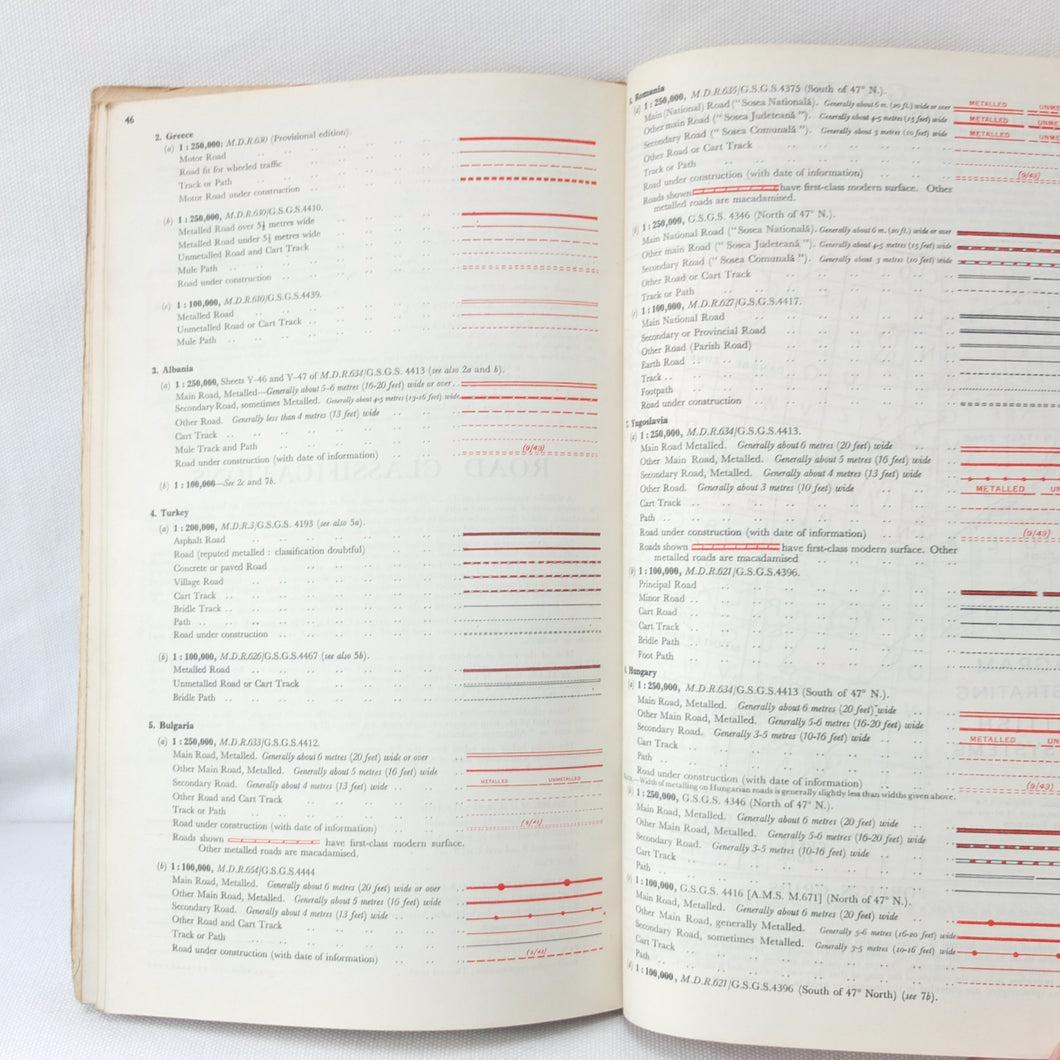 46
2. Greece
(a) 1 : 250,000: M.D.R.630 (Provisional edition).
Motor Road
Road fit for wheeled traffic
Track or Path
Motor Road under construction
(b) 1 : 250,000, M.D.R.630/G.S.G.S.4410.
Metalled Road over 5½ metres wide
Metalled Road under 5½ metres wide
Unmetalled Road and Cart Track
Mule Path
Road under construction
(c) 1 : 100,000, M.D.R.610/G.S.G.S.4439.
Metalled Road
Unmetalled Road or Cart Track
Mule Path
3. Albania
(a) 1 : 250,000, Sheets Y-46 and Y-47 of M.D.R.634/G.S.G.S. 4413 (see also 2a and b).
Main Road, Metalled—Generally about 5-6 metres (16-20 feet) wide or over
Secondary Road, sometimes Metalled. Generally about 4-5 metres (13-16 feet) wide
Other Road. Generally less than 4 metres (13 feet) wide
Cart Track
Mule Track and Path
Road under construction (with date of information) (9/43)
(b) 1 : 100,000—See 2c and 7b.
4. Turkey
(a) 1 : 200,000, M.D.R.3/G.S.G.S. 4193 (see also 5a).
Asphalt Road
Road (reputed metalled : classification doubtful)
Concrete or paved Road
Village Road
Cart Track
Bridle Track
Path
Road under construction
(b) 1 : 100,000, M.D.R.626/G.S.G.S.4467 (see also 5b).
Metalled Road
Unmetalled Road or Cart Track
Bridle Path
5. Bulgaria
(a) 1 : 250,000, M.D.R.633/G.S.G.S.4412.
Main Road, Metalled. Generally about 6 metres (20 feet) wide or over
Other Main Road, Metalled. Generally about 5 metres (16 feet) wide
Secondary Road. Generally about 4 metres (13 feet) wide METALLED UNMETALLED
Other Road and Cart Track
Track or Path
Road under construction (with date of information)
Roads shown have first-class modern surface.
Other metalled roads are macadamised.
(b) 1 : 100,000, M.D.R.654/G.S.G.S.4444
Main Road, Metalled. Generally about 6 metres (20 feet) wide or over
Other Main Road, Metalled. Generally about 5 metres (16 feet) wide
Secondary Road. Generally about 4 metres (13 feet) wide
Other Road and Cart Track
Track or Path
Road under construction (with date of information)
Romania
(a) 1 : 250,000, M.D.R.635/G.S.G.S.4375 (South of 47° N.).
Main (National) Road ("Sosea Natională). Generally about 6 m. (20 ft.) wide or over METALLED
Other main Road ("Sosea Judeteană"). Generally about 4-5 metres (15 feet) wide METALLED
Secondary Road ("Sosea Comunală"). Generally about 3 metres (10 feet) wide METALLED
Other Road or Cart Track
Track or Path
Road under construction (with date of information) (9/43)
Roads shown have first-class modern surface. Other
metalled roads are macadamised.
1 : 250,000, G.S.G.S. 4346 (North of 47° N.).
Main National Road ("Sosea Natională). Generally about 6 m. (20 ft.) wide or over
Other main Road ("Sosea Judeteană"). Generally about 4-5 metres (15 feet) wide
Secondary Road ("Sosea Comunală"). Generally about 3 metres (10 feet) wide
Other Road or Cart Track
Track or Path
1 : 100,000, M.D.R.627/G.S.G.S.4417.
Main National Road
Secondary or Provincial Road
Other Road (Parish Road)
Earth Road
Track
Footpath
Road under construction
Yugoslavia
(a) 1 : 250,000, M.D.R.634/G.S.G.S.4413.
Main Road Metalled. Generally about 6 metres (20 feet) wide
Other Main Road, Metalled. Generally about 5 metres (16 feet) wide
Secondary Road, Metalled. Generally about 4 metres (13 feet) wide
Other Road. Generally about 3 metres (10 feet) wide METALLED
Cart Track
Path
Road under construction (with date of information) (9/43)
Roads shown have first-class modern surface. Other
metalled roads are macadamised
1 : 100,000, M.D.R.621/G.S.G.S.4396.
Principal Road
Minor Road
Cart Road
Cart Track
Bridle Path
Foot Path
Hungary
(a) 1 : 250,000, M.D.R.634/G.S.G.S.4413 (South of 47° N.).
Main Road, Metalled. Generally about 6 metres (20 feet) wide
Other Main Road, Metalled. Generally 5-6 metres (16-20 feet) wide
Secondary Road. Generally 3-5 metres (10-16 feet) wide METALLED
Cart Track
Path
Road under construction (with date of information) (9/43)
Width of metalling on Hungarian roads is generally slightly less than widths given above.
1 : 250,000, G.S.G.S. 4346 (North of 47° N.).
Main Road, Metalled. Generally about 6 metres (20 feet) wide
Other Main Road, Metalled. Generally 5-6 metres (16-20 feet) wide
Secondary Road. Generally 3-5 metres (10-16 feet) wide
Cart Track
Path
1 : 100,000, G.S.G.S. 4416 [A.M.S. M.671] (North of 47° N.).
Main Road, Metalled. Generally about 6 metres (20 feet) wide
Other Main Road, generally Metalled. Generally 5-6 metres (16-20 feet) wide
Secondary Road, sometimes Metalled. Generally 3-5 metres (10-16 feet) wide
Cart Track
Path
1 : 100,000, M.D.R.621/G.S.G.S.4396 (South of 47° North) (see 7b).